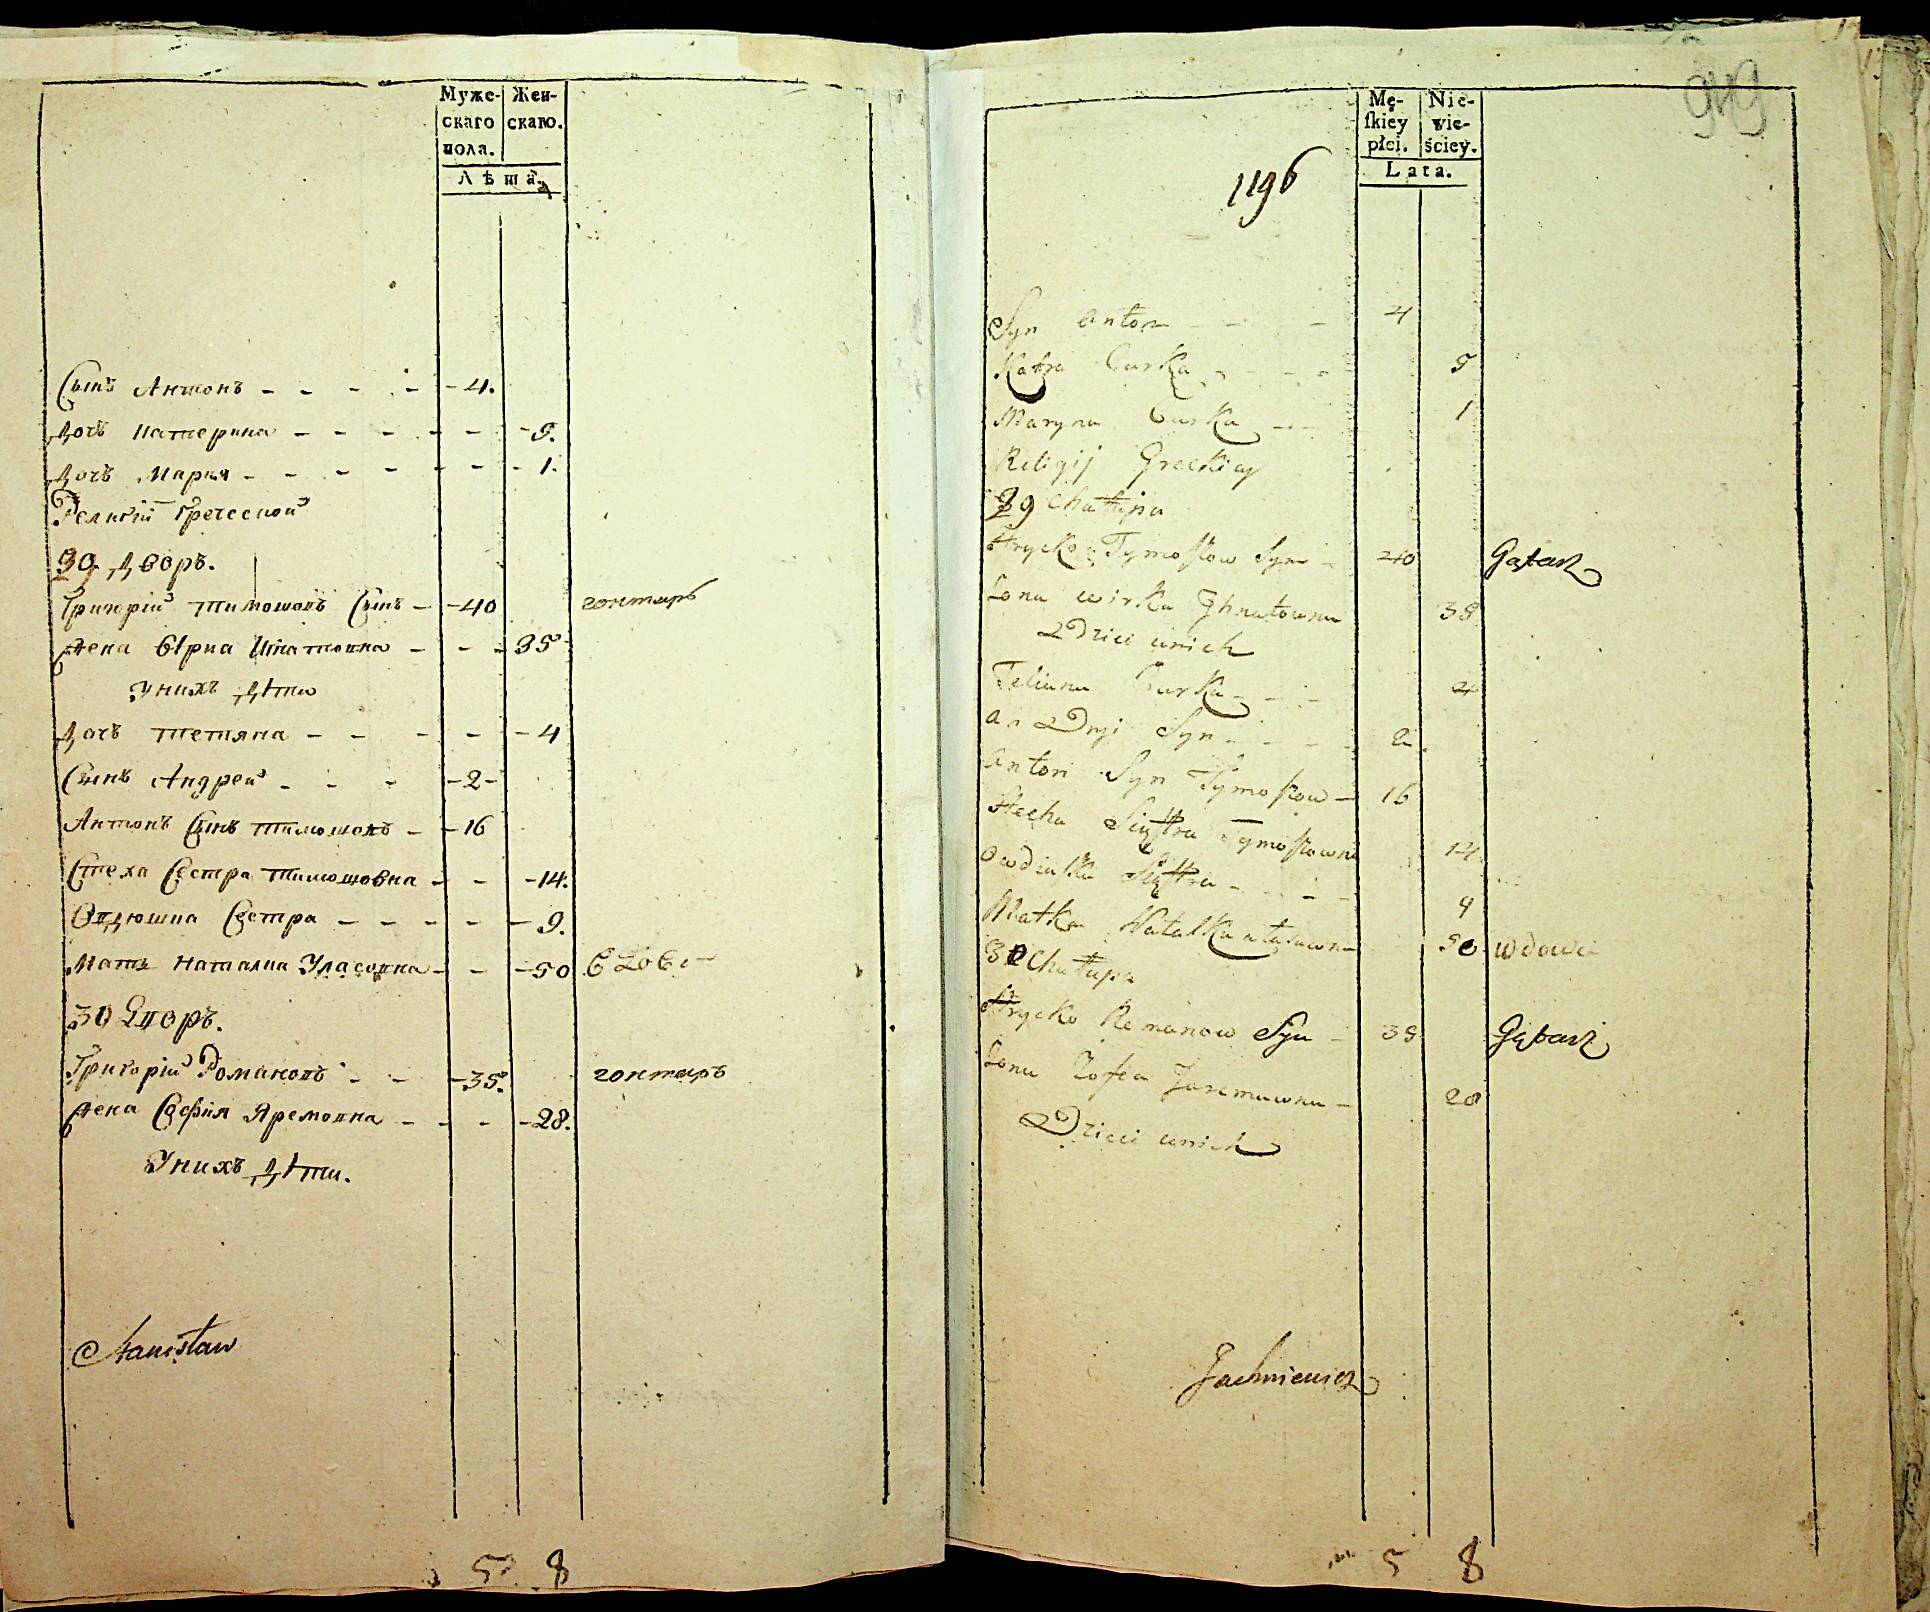 Муже- Жен-
скаго скаго.
пола.
Лѣта.
Сынъ Антонъ - - - - - 4.
Дочь Катерина - - - - - - 5.
Дочь Мария - - - - - - - 1.
Религіи Греческой
29 Дворъ.
Григорій Тимошовъ Сынъ - - 40 гонтарь
Жена Ѵрка Игнатовна - - - 35
У нихъ дѣти
Дочь Тетяна - - - - - 4
Сынъ Андрей - - - - 2 -
Антонъ Сынъ Тимошовъ - - 16
Стеха Сестра Тимошовна - - - 14.
Овдюшка Сестра - - - - - - 9.
Мать Наталка Уласовна - - - 50
30 Дворъ.
Григорій Романовъ - - - 35. гонтаръ
Жена София Яремовна - - - - 28.
У нихъ дѣти.
Stanisław
5 8
949
Mę- Nie-
ſkiey wie-
płci. ściey.
Lata.
1196
Syn Anton - - - 4
Katra Curka - - - - 5
Maryna Curka - - 1
Religij Greckiey
29 Chałupa
Hrycko Tymoszow Syn - 40 Gątarz
Żona Wirka Ihnatowna 35
Dzieci unich
Teliana Curka - - - 4
Andryi Syn - - - - 2
Anton Syn Tymoszow - 16
Stecha Siostra Tymoszowna 14
Owdiuszka Siostra - - - - 9
Matka Natalka Ułasowna 50 wdowa
30 Chałupa
Hrycko Romanow Syn - 35 Gątarz
Żona Zofia Jaremowna - 28
Dzieci unich
Jachniewicz
5 8